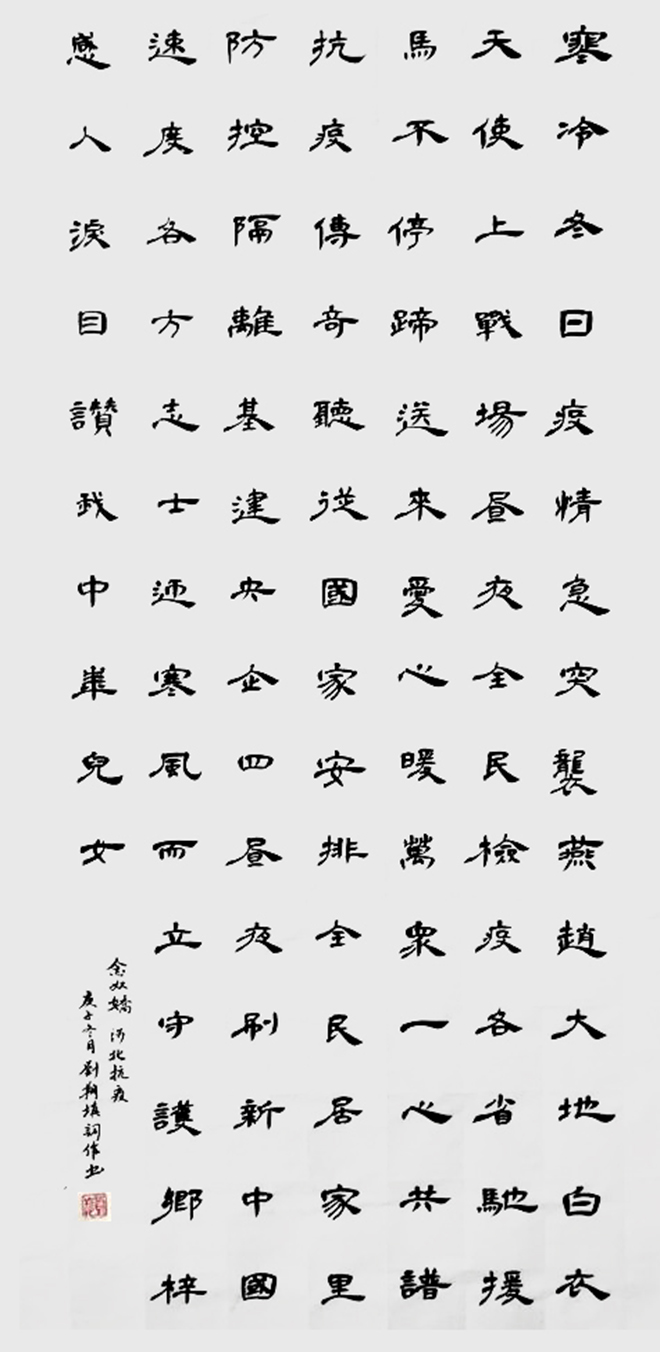 寒冷冬日疫情急突襲燕趙大地白衣
天使上戰場昼夜全民檢疫各省馳援
馬不停蹄送來愛心暖萬衆一心共譜
抗疫傳奇聽從國家安排全民居家里
防控隔離基建央企四昼夜刷新中國
速度各方志士迎寒風而立守護鄉梓
感人淚目讃我中華兒女
念奴嬌 河北抗疫
庚子冬月劉翔填詞作书